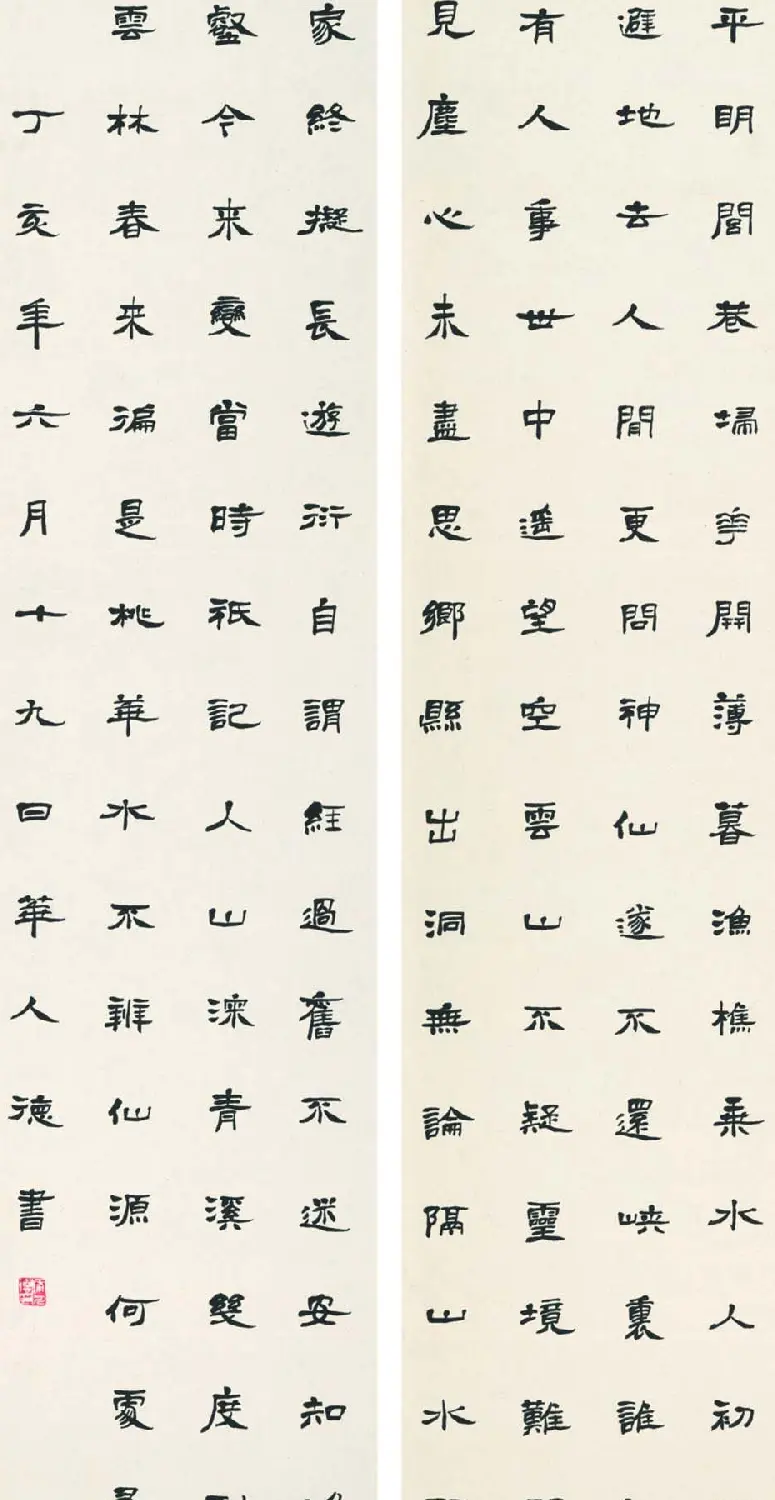 平明閭巷埽華開薄暮漁樵乘水入初
避地去人間更問神仙遂不還峽裏誰
有人事世中遙望空雲山不疑靈境難
見塵心未盡思鄉縣出洞無論隔山水
家終擬長遊衍自謂經過舊不迷安知
壑今來變當時祇記入山深青溪幾度
雲林春來徧是桃華水不辨仙源何處
丁亥年六月十九日華人德書